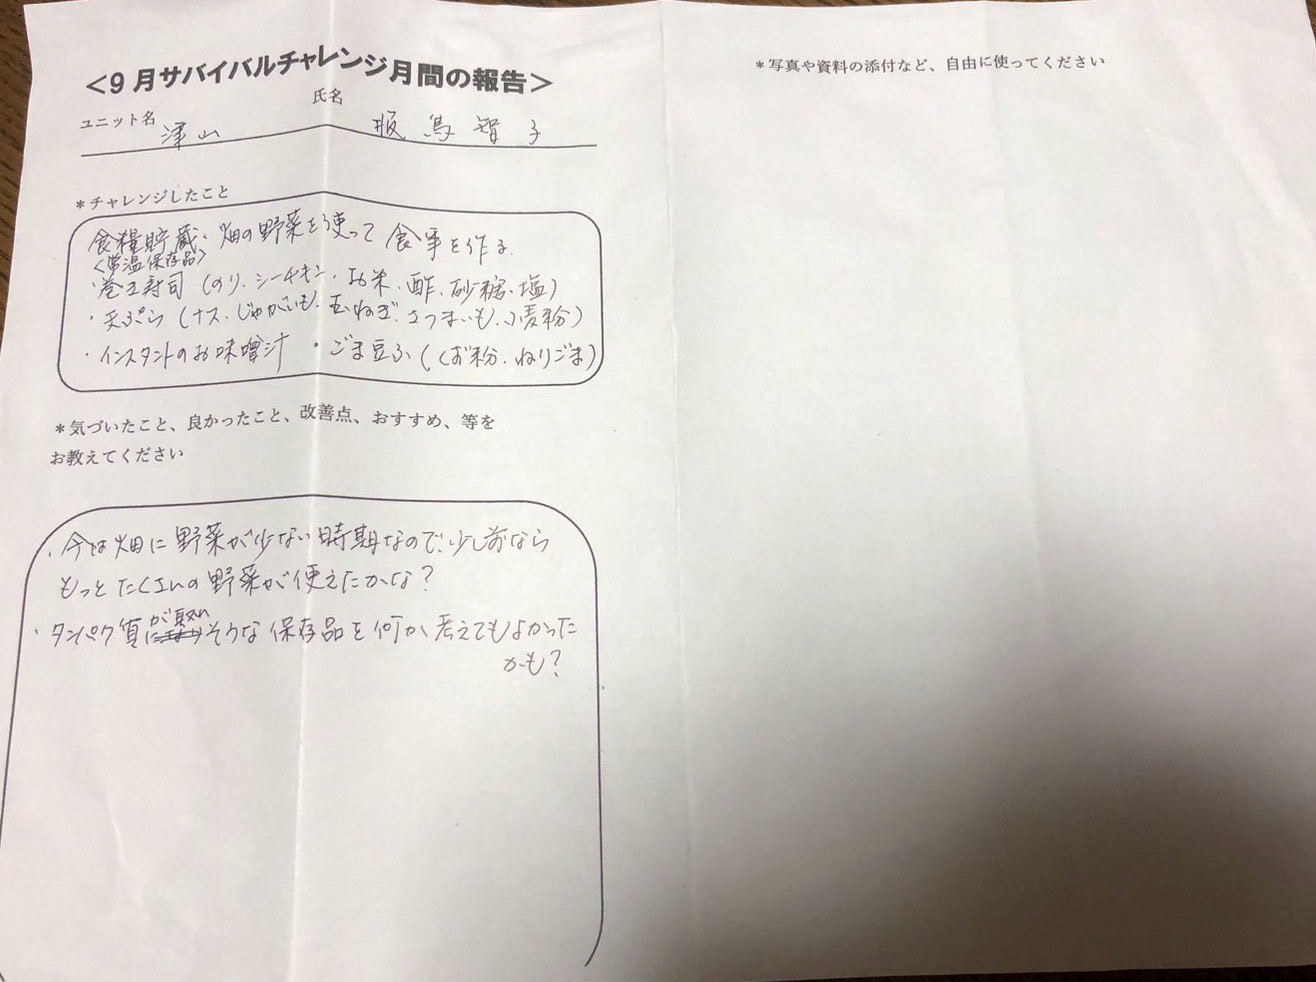 ＜9月サバイバルチャレンジ月間の報告＞
ユニット名 津山 氏名 飯島智子
＊チャレンジしたこと
食糧貯蔵、畑の野菜を使って食事を作る。
＜常温保存品＞
・巻き寿司（のり、シーチキン、お米、酢、砂糖、塩）
・天ぷら（ナス、じゃがいも、玉ねぎ、さつまいも、小麦粉）
・インスタントのお味噌汁 ・ごま豆ふ（くず粉、ねりごま）
＊気づいたこと、良かったこと、改善点、おすすめ、等を
お教えてください
・今は畑に野菜が少ない時期なので、少し前なら
もっとたくさんの野菜が使えたかな？
・タンパク質が取れそうな保存品を何か考えてもよかった
かも？
＊写真や資料の添付など、自由に使ってください